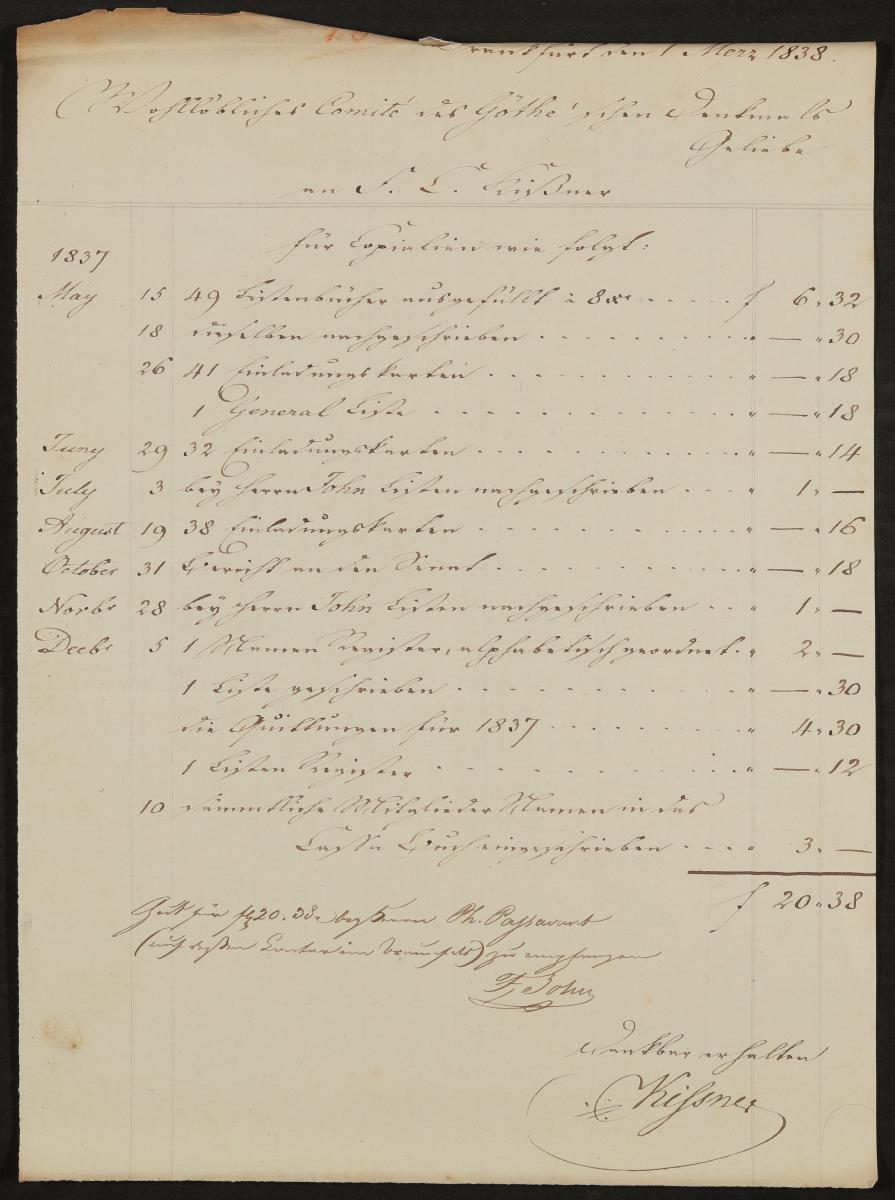 Frankfurt den 1 Merz 1838.
Wohllöbliches Comité des Göthe'schen Denkmals
Geliebe
an F. C. Kißner
für Copialien wie folgt:
1837
May 15 49 Listenbücher ausgefüllt à 8 xr. - - - - - f 6 " 32
18 dieselben nachgeschrieben - - - - - - - - - - " — " 30
26 41 Einladungskarten - - - - - - - - - - - - " — " 18
1 General Liste - - - - - - - - - - - - - " — " 18
Juny 29 32 Einladungskarten - - - - - - - - - - - - " — " 14
July 3 bey Herrn John Listen nachgeschrieben - - - " 1 " —
August 19 38 Einladungskarten - - - - - - - - - - - - " — " 16
October 31 Bericht an den Senat - - - - - - - - - - - " — " 18
Novbr 28 bey Herrn John Listen nachgeschrieben - - " 1 " —
Decbr 5 1 Namen Register, alphabetisch geordnet - " 2 " —
1 Liste geschrieben - - - - - - - - - - - - " — " 30
die Quittungen für 1837 - - - - - - - - " 4 " 30
1 Listen Register - - - - - - - - - - - - " — " 12
10 sämmtliche Mitglieder Namen in das
Cassa Buch eingeschrieben - - - - " 3 " —
f 20 " 38
Gutt für f 20.38 bey Herrn Ph. Passavant
(auf dessen Contor im Braunfels) zu empfangen
F. John
Dankbar erhalten
Kissner